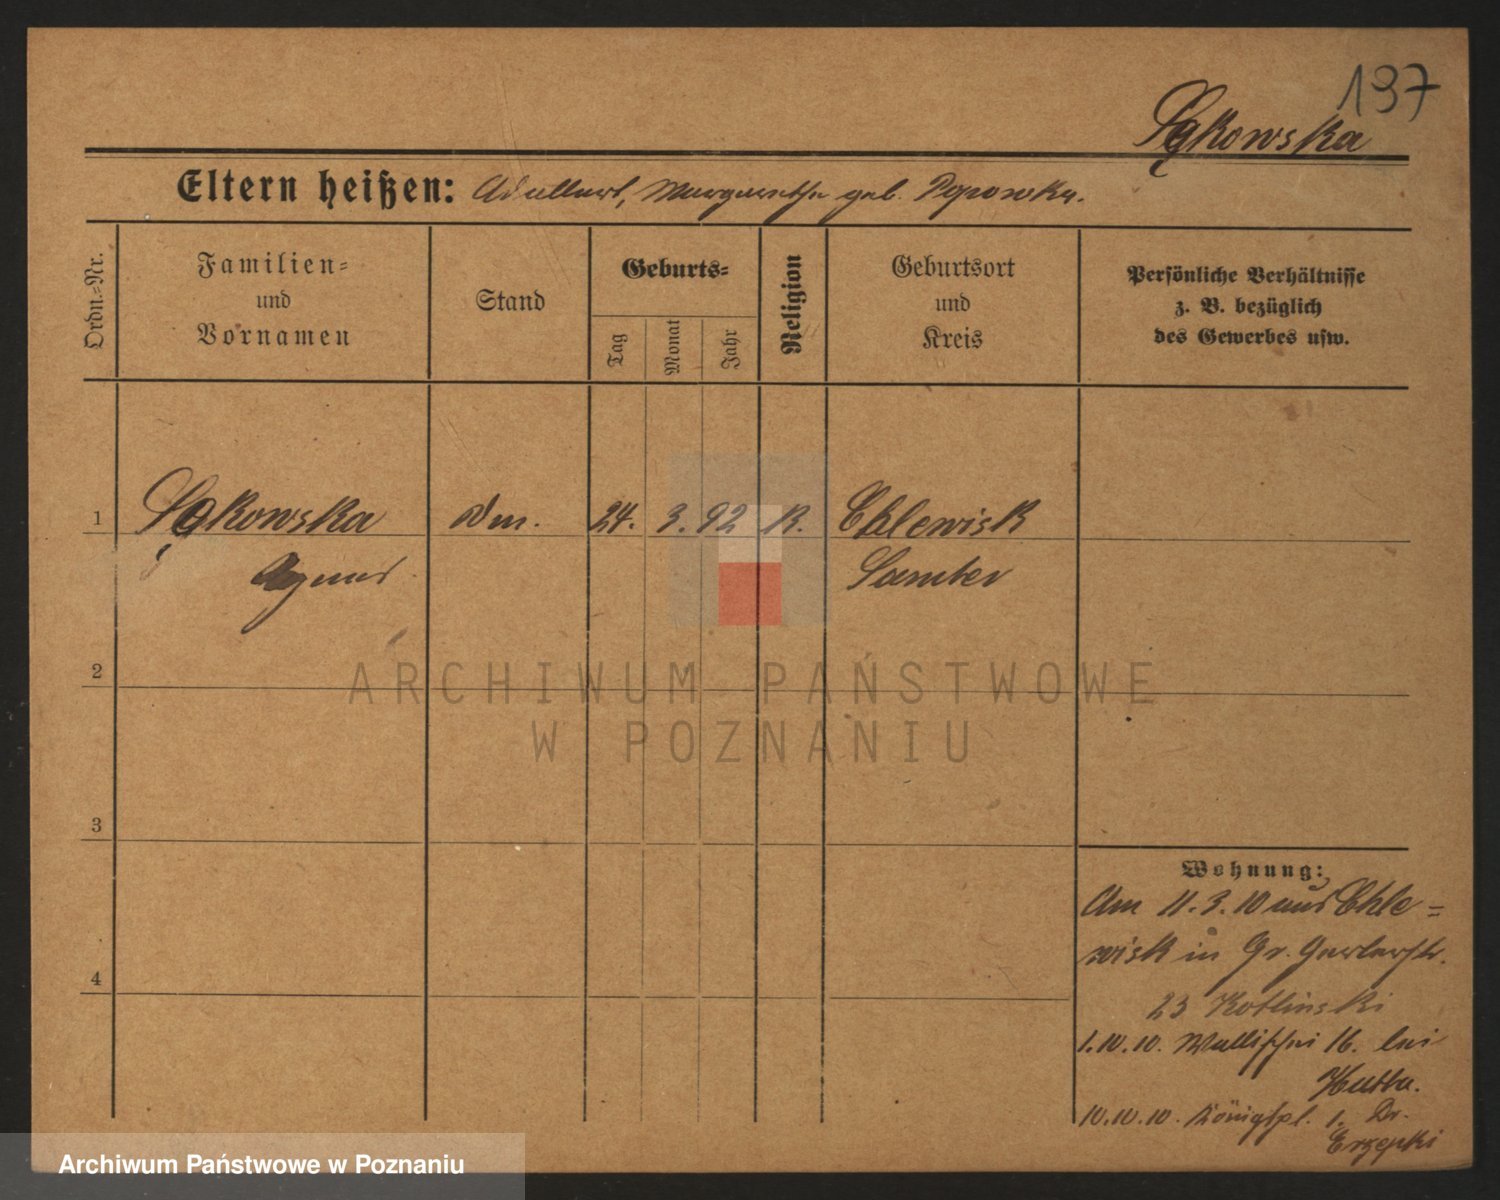 137
Sąkowska
Eltern heißen: Adalbert, Margarethe geb. Poposka.
Ordn.-Nr.
Familien-
und
Vornamen
Stand
Geburts-
Tag
Monat
Jahr
Religion
Geburtsort
und
Kreis
Persönliche Verhältnisse
z. B. bezüglich
des Gewerbes usw.
1
Sąkowska
Agnes
Dm.
24. 3. 92
K.
Chlewisk
Samter
2
ARCHIWUM PAŃSTWOWE
W POZNANIU
3
4
Wohnung:
Am 11.3.10 aus Chle=
wisk in Gr. Gerberstr.
23 Kotlinski
1.10.10. Wallischei 16. bei
10.10.10. Königspl. 1. Dr.
Erzepki
Archiwum Państwowe w Poznaniu